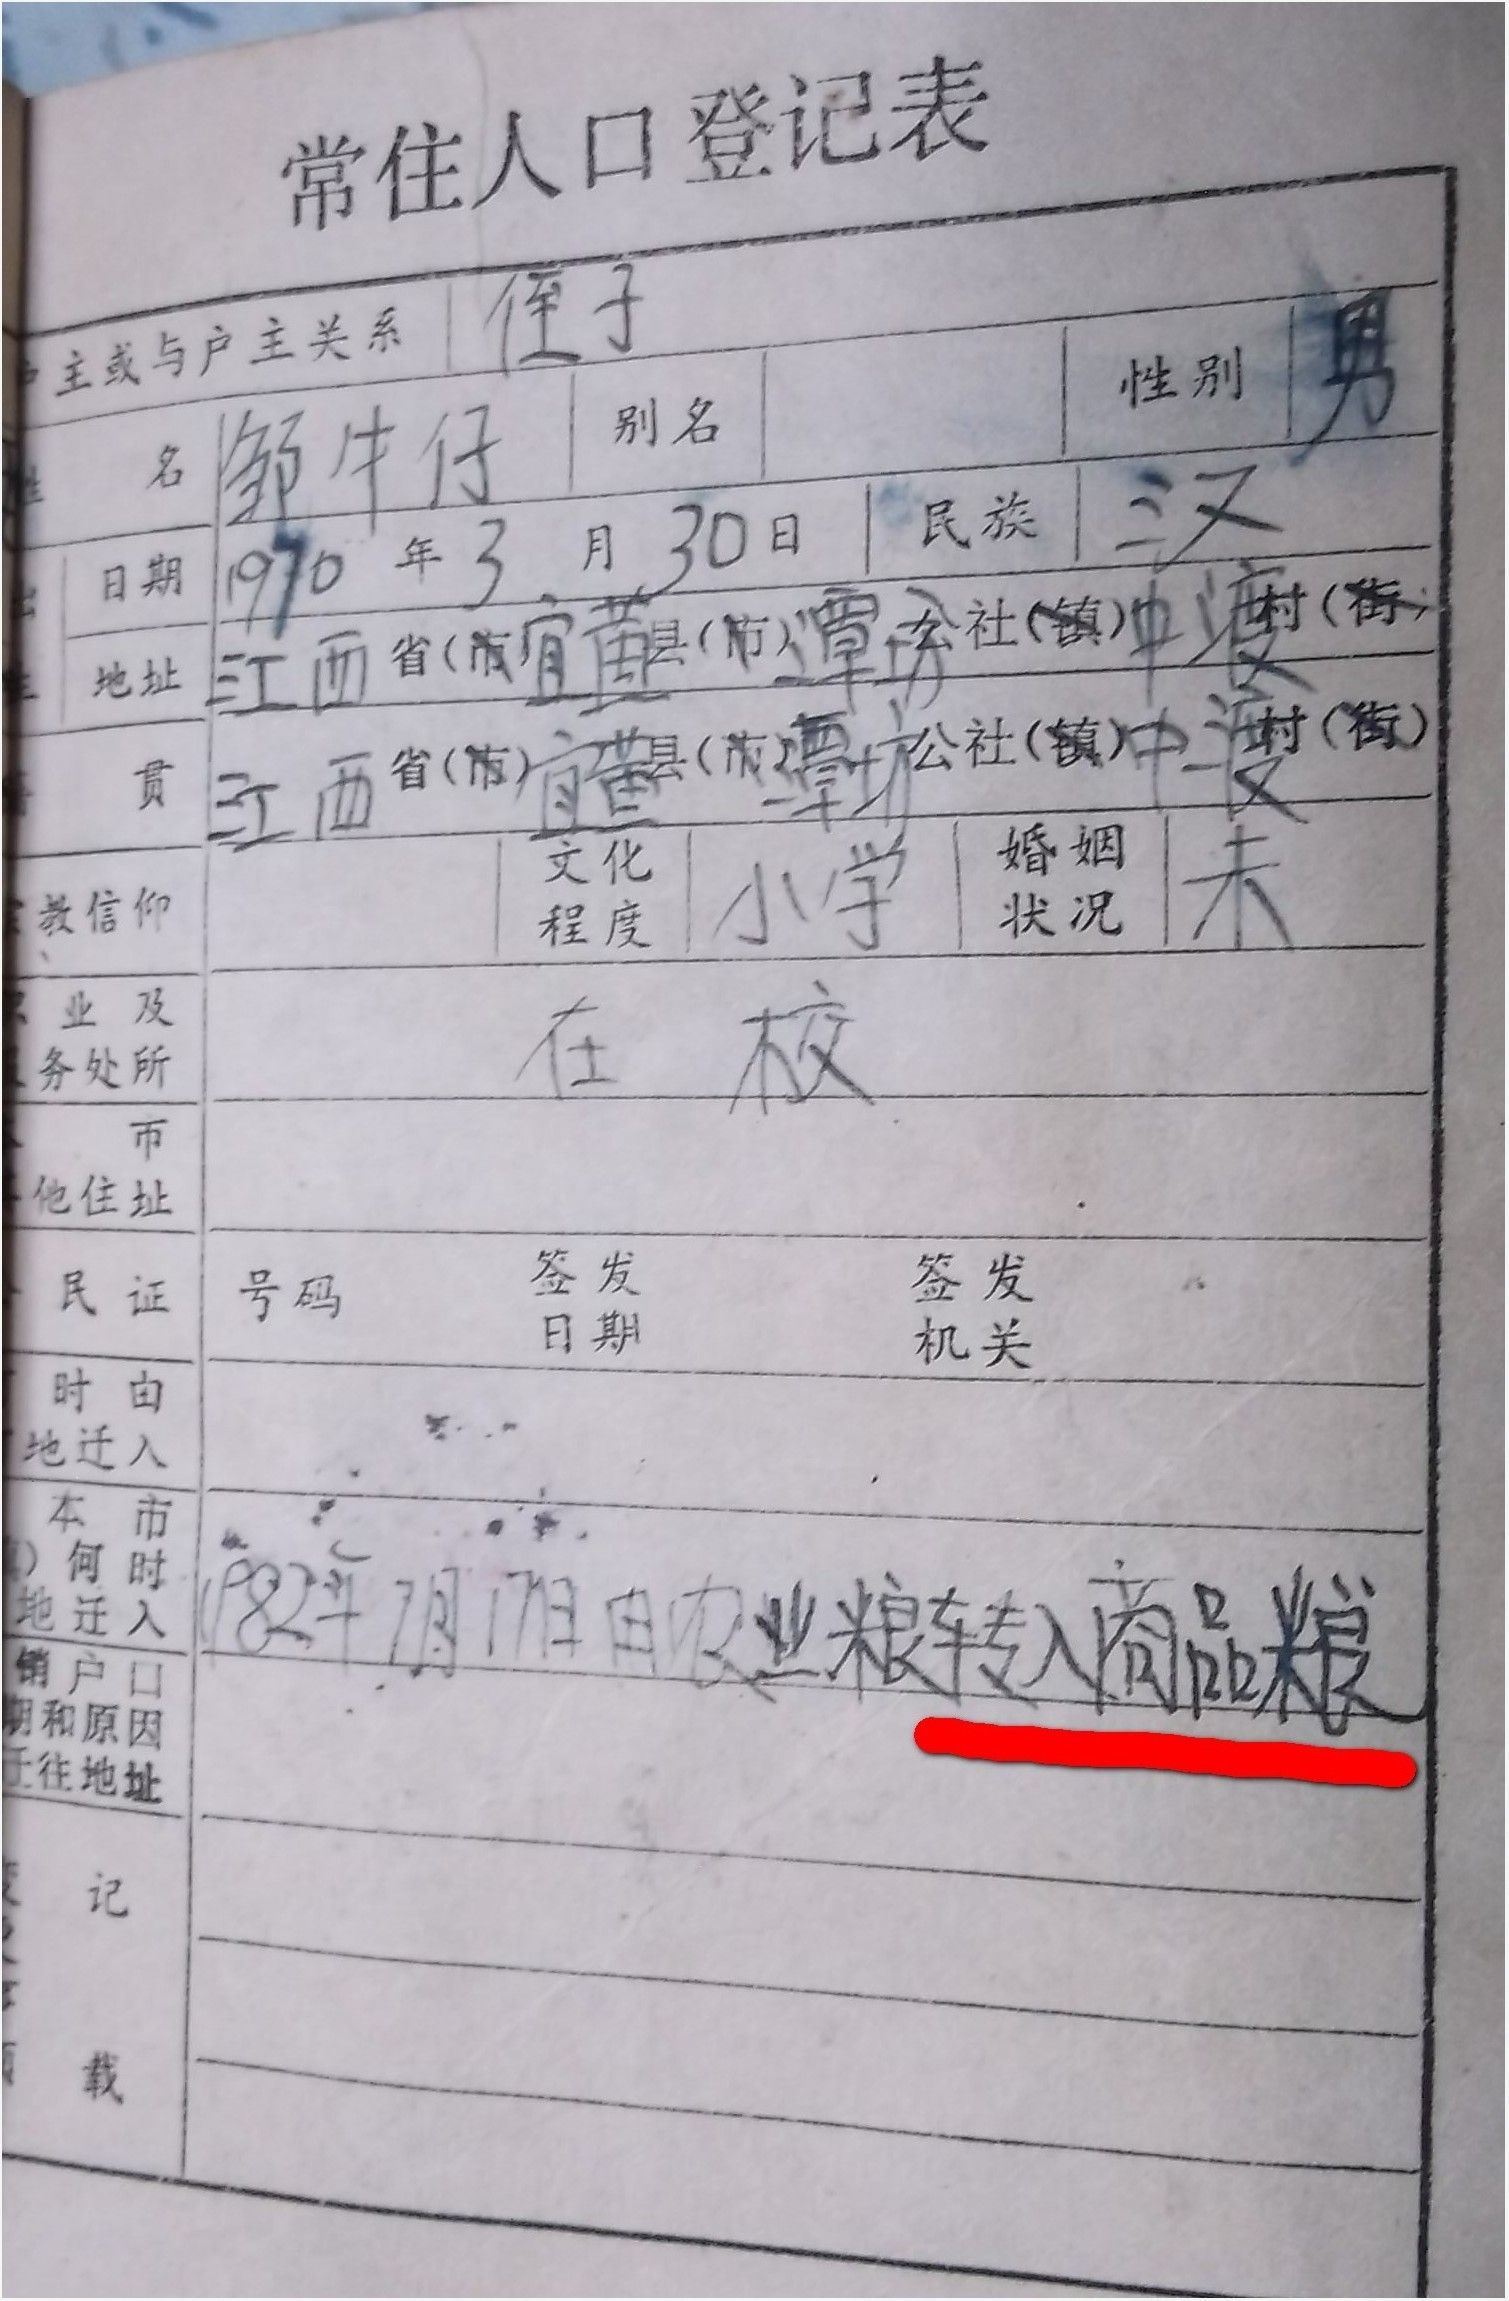 常住人口登记表
户主或与户主关系 侄子
名 邹牛仔 别名 性别 男
日期 1970年3月30日 民族 汉
地址 江西省(市)宜黄县(市)潭坊公社(镇)中渡村(街)
贯 江西省(市)宜黄县(市)潭坊公社(镇)中渡村(街)
教信仰 文化程度 小学 婚姻状况 未
业及
务处所 在校
市
他住址
民证 号码 签发日期 签发机关
时由
地迁入
本市
何时
地迁入 1982年7月17日由农业粮转入商品粮
销户口
期和原因
迁往地址
记
载